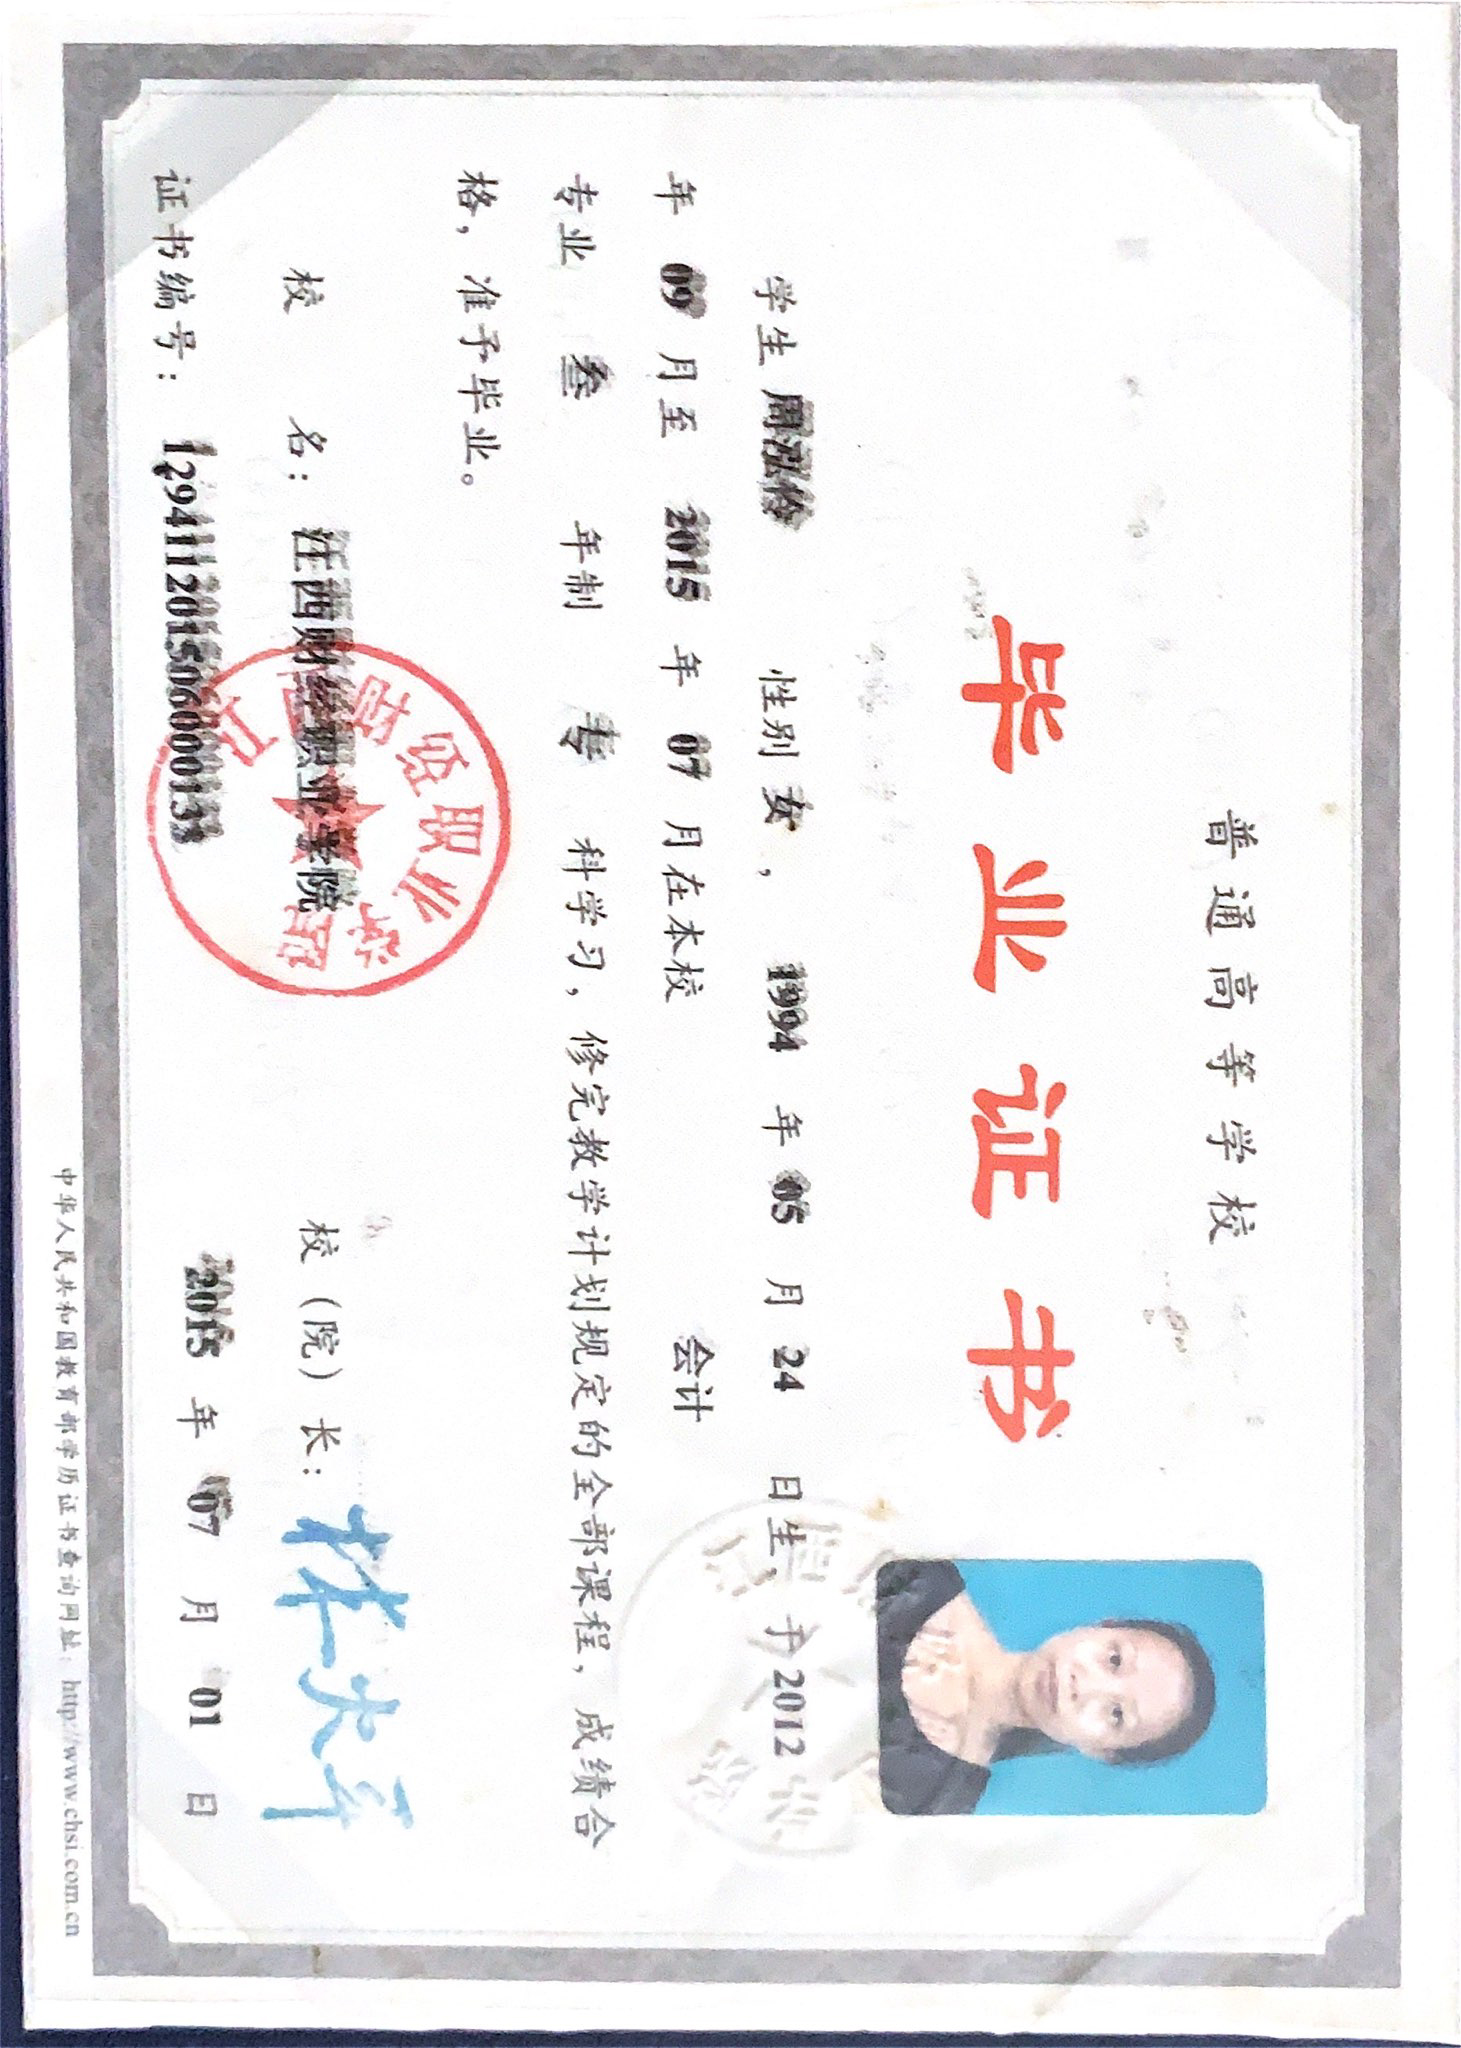 普通高等学校
毕业证书
学生 周泓伶 性别 女, 1994 年 05 月 24 日生, 于 2012
年 09 月至 2015 年 07 月在本校 会计
专业 叁 年制 专 科学习, 修完教学计划规定的全部课程, 成绩合
格, 准予毕业。
校 名: 江西财经职业学院 校(院)长:
证书编号: 129411201506000133 2015 年 07 月 01 日
中华人民共和国教育部学历证书查询网址: http://www.chsi.com.cn
江西财经职业学院